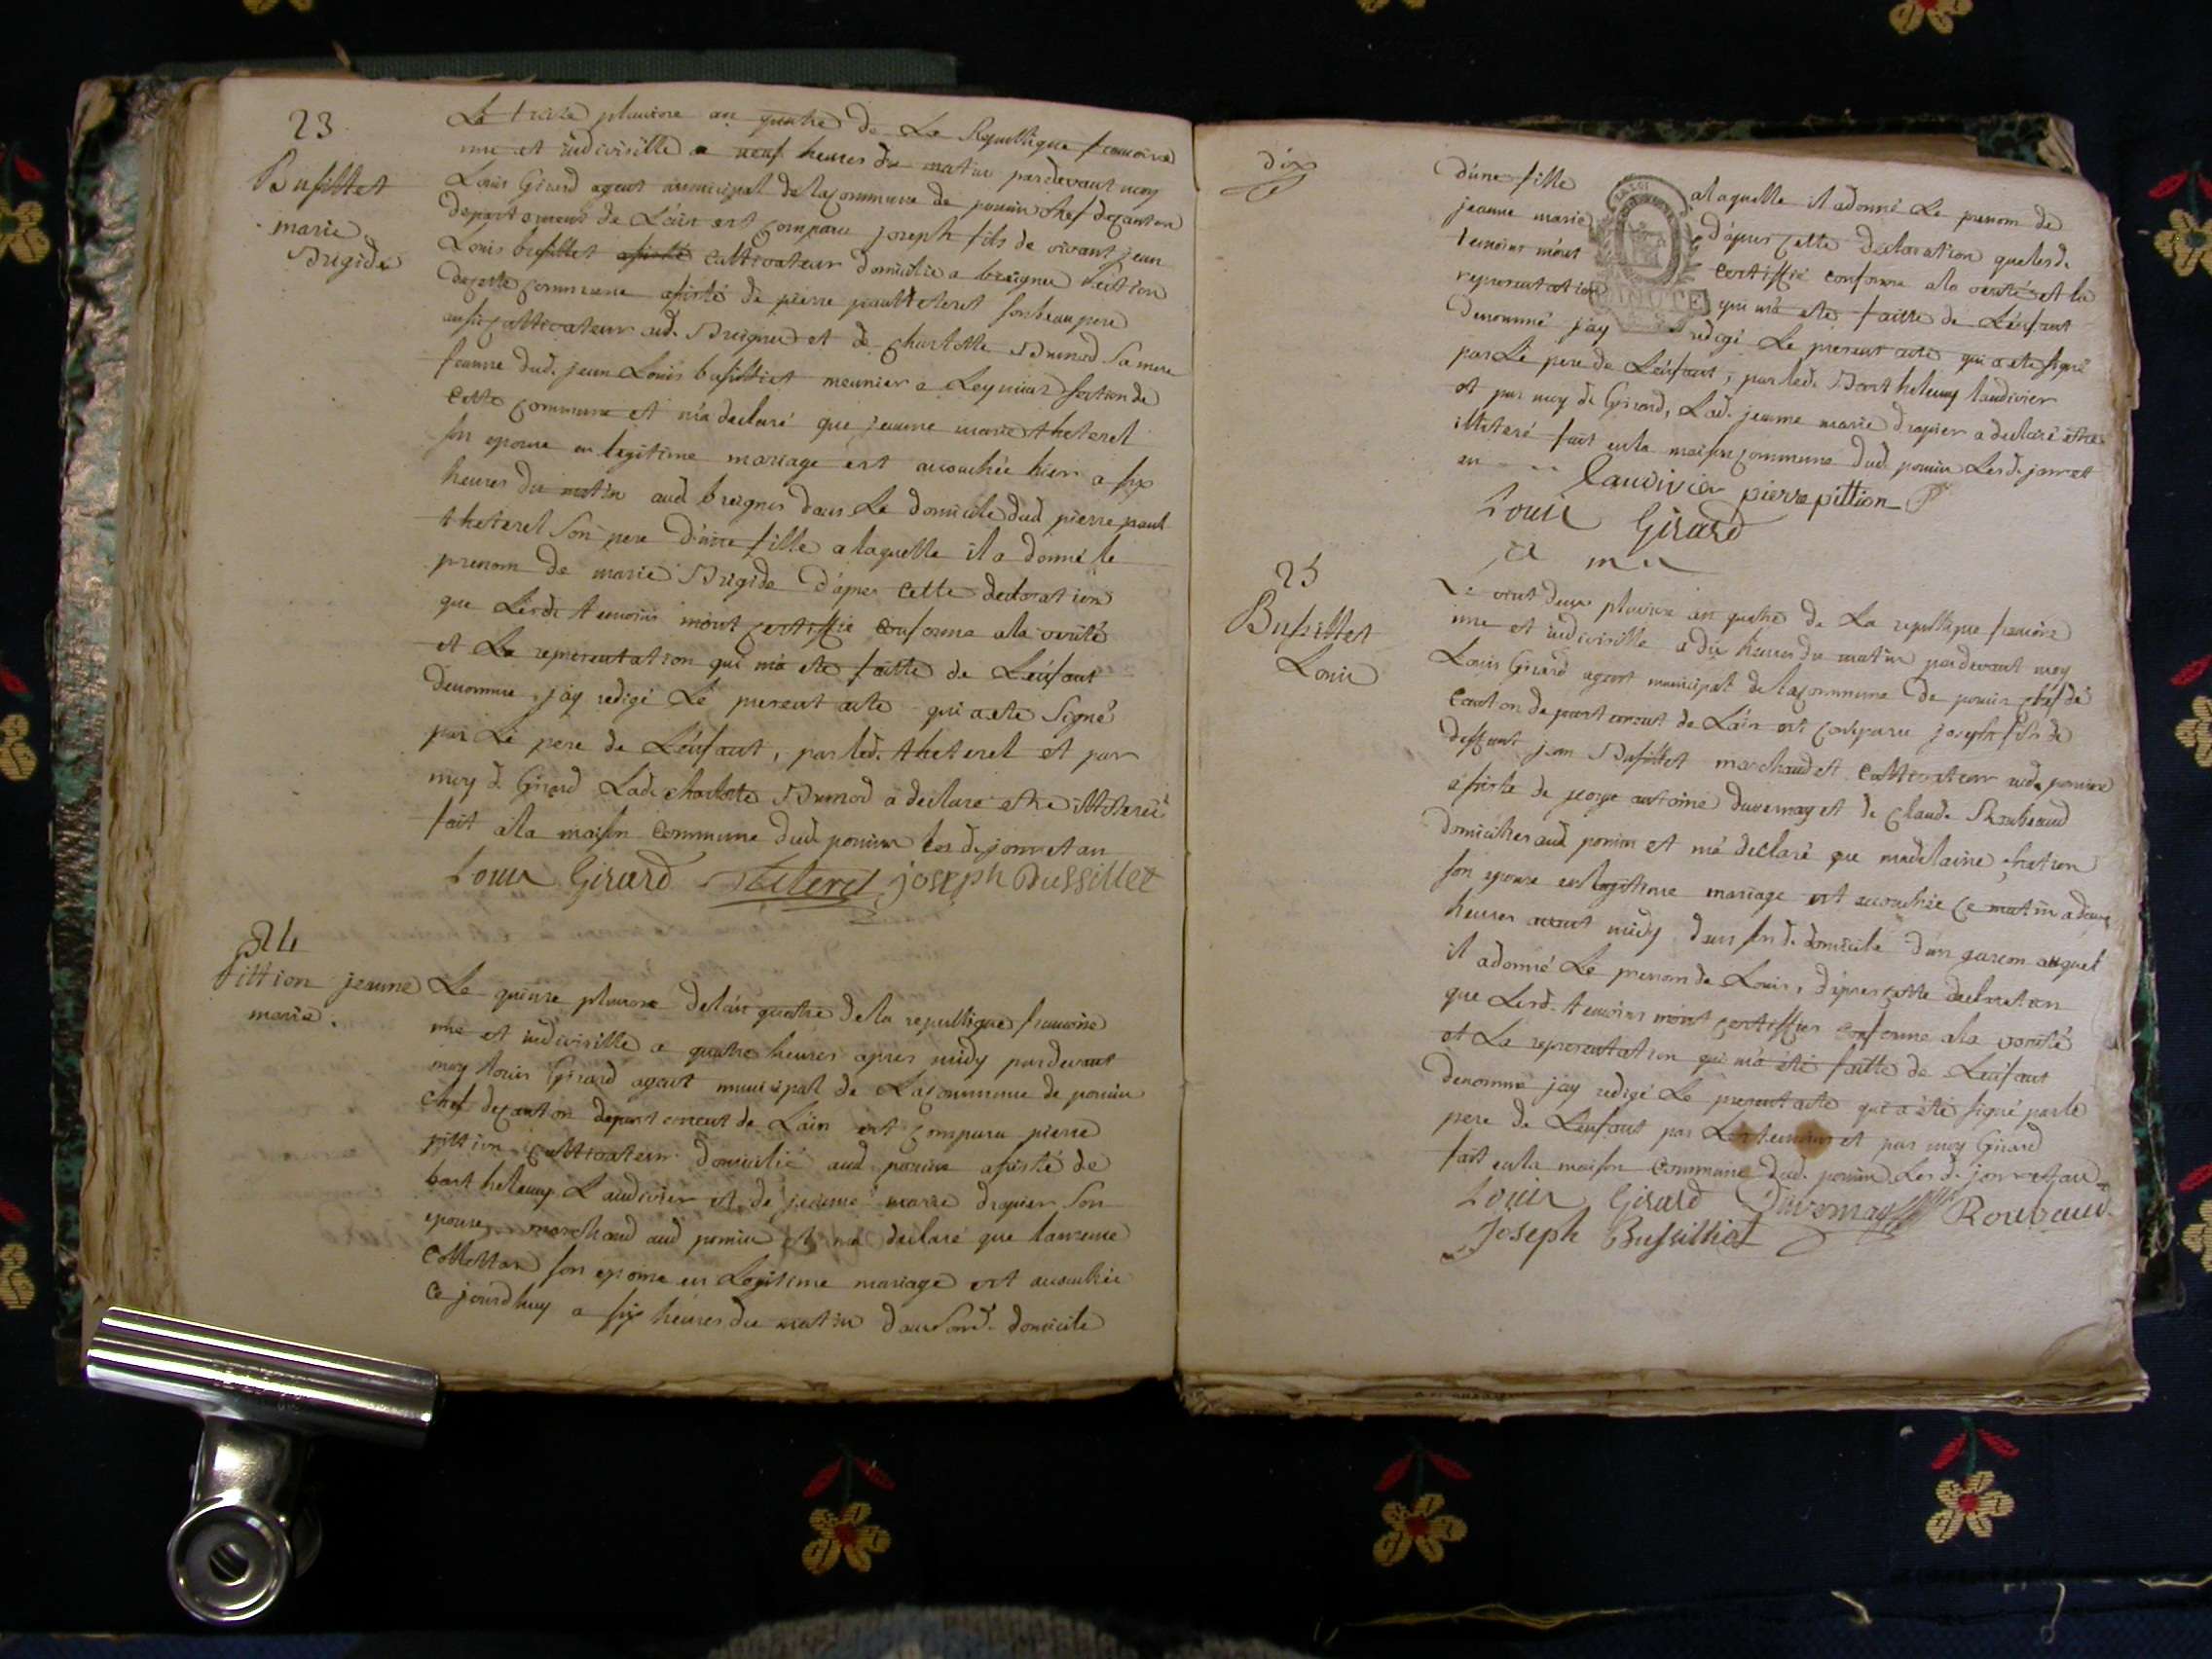 23
Busillet
marie
Brigide
Le treize pluviose an quatre de La Republique francoise
une et indivisille a neuf heures du matin pardevant moy
Louis Girard agent municipal de lacommune de poncin chef de canton
departement de L'ain est comparu joseph fils de vivant jean
Louis busillet cultivateur domicilié a breignes section
decette commune assisté de pierre paul theterel son beau pere
aussi cultivateur aud. Breignes et de charlotte Brunod sa mere
femme dud. jean Louis busilliet meunier a Leymiat section de
Cette commune et m'a declaré que jeanne marie theterel
son epouse en legitime mariage est accouchée hier a six
heures du matin aud breignes dans Le domicile dud pierre paul
theterel son pere d'une fille alaquelle il a donné le
prenom de marie Brigide d'apres cette declaration
que Lesd. temoins m'ont certiffié conforme ala verité
et La representation qui m'a ete faitte de L'enfant
denommée j'ay redigé Le present acte qui a ete signé
par Le pere de L'enfant, par led. theterel et par
moy d. Girard Lad. charlotte Brunod a declaré etre illiterée
fait ala maison commune dud poncin les d. jour et an
Louis Girard Theterel joseph Bussillet
24
Pittion jeanne
marie.
Le quinze pluviose delan quatre dela republique francoise
une et indivisille a quatre heures apres midy pardevant
moy Louis Girard agent municipal de Lacommune de poncin
chef decanton departement de L'ain est comparu pierre
pittion cultivateur domicilié aud. poncin assisté de
barthelemy Laudivier et de jeanne marie drapier son
epouse marchand aud poncin et m'a declaré que
son epouse en Legitime mariage est accouchée
ce jourdhuy a six heures du matin dans sond. domicile
dix
d'une fille alaquelle il adonné Le prenom de
jeanne marie d'apres cette declaration que lesd.
temoins m'ont certiffié conforme ala verité et la
representation qui m'a ete faitte de L'enfant
denommé j'ay redigé Le present acte qui a ete signé
par Le pere de L'enfant, par led. Barthelemy laudivier
et par moy d. Girard, Lad. jeanne marie drapier a declaré etre
illiteré fait enla maison commune dud poncin Lesd. jour et
an
Laudivier pierre pittion
Louis Girard
25
Busillet
Louis
Le vint deux pluviose an quatre de La republique francoise
une et indivisille a dix heures du matin pardevant moy
Louis Girard agent municipal de lacommune de poncin chef de
canton departement de L'ain est comparu joseph fils de
deffunt jean Busillet marchand et cultivateur aud. poncin
assisté de george antoine duvernay et de claude Roubaud
domiciliés aud poncin et m'a declaré que madelaine
son epouse enlegitime mariage est accouchée ce matin a deux
heures avant midy dans son d. domicile d'un garcon auquel
il adonné Le prenom de Louis, d'apres cette declaration
que Lesd. temoins m'ont certiffiés conforme ala verité
et La representation qui m'a été faitte de L'enfant
denommé jay redigé Le present acte qui a été signé par le
pere de L'enfant par Les temoins et par moy Girard
fait enla maison commune dud. poncin Les d. jour et an
Louis Girard Duvernay Roubaud
Joseph Busilliet